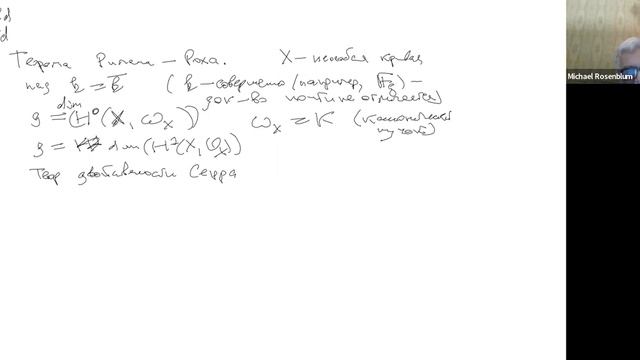 Теорема Римана – Роха. X – неособая кривая
над k = k̄ ( k – совершенно (например, F_q) –
док-во почти не отличается)
g = dim (H⁰(X, ω_X)) ω_X = K (канонический
g = dim (H¹(X, O_X)) пучок)
Теор двойственности Серра
Michael Rosenblum